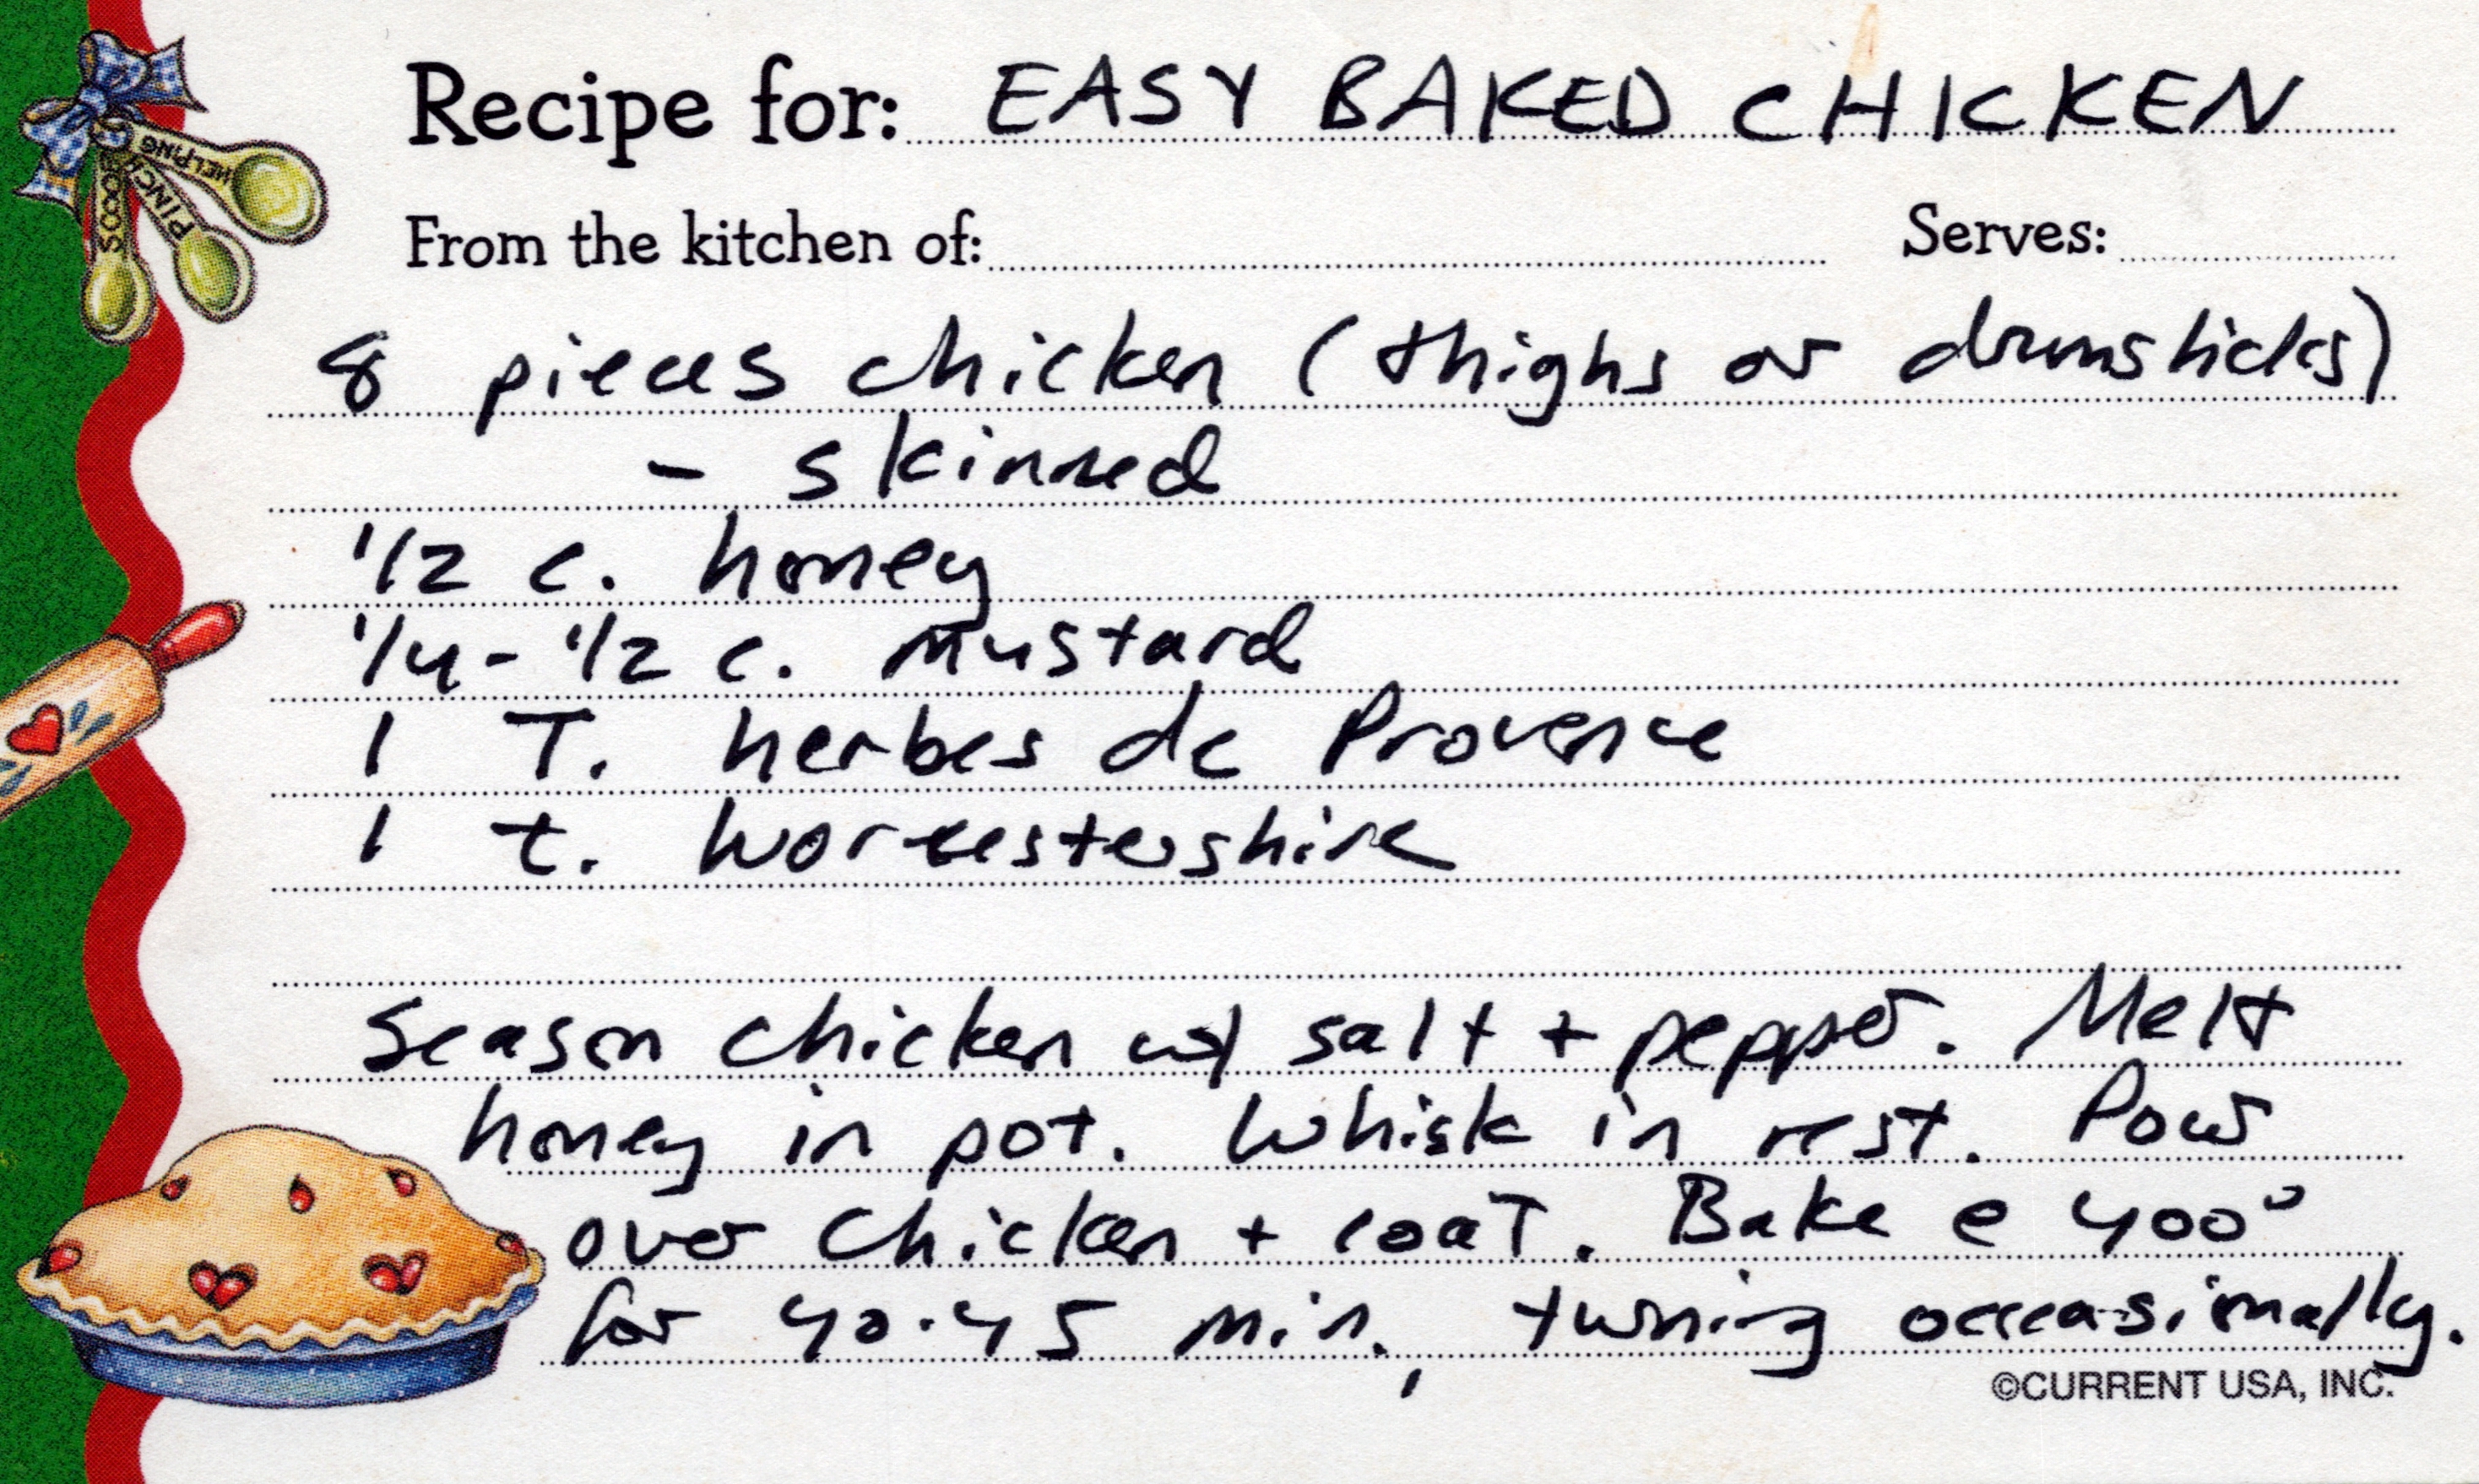 Recipe for: EASY BAKED CHICKEN
From the kitchen of: Serves:
8 pieces chicken (thighs or drumsticks)
- skinned
1/2 c. honey
1/4-1/2 c. mustard
1 T. herbes de Provence
1 t. Worcestershire
Season chicken w/ salt + pepper. Melt
honey in pot. Whisk in rest. Pour
over chicken + coat. Bake @ 400°
for 40-45 min., turning occcasionally.
©CURRENT USA, INC.
SCOOP
PINCH
HELPING